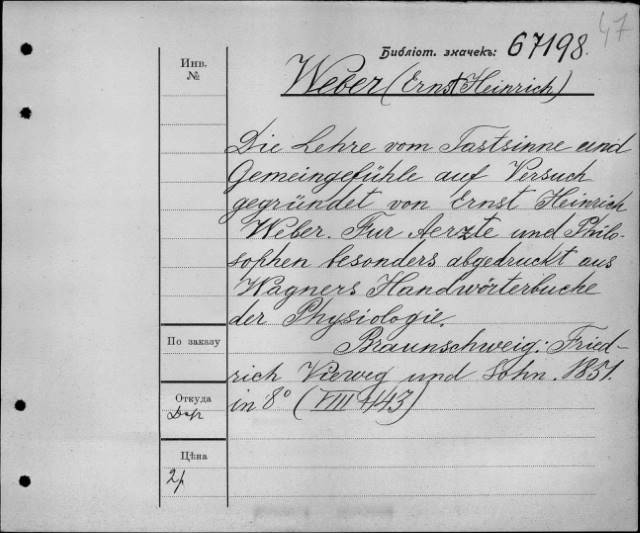 47
Библіот. значекъ: 67198.
Инв.
№
Weber (Ernst Heinrich)
Die Lehre vom Tastsinne und
Gemeingefühle auf Versuch
gegründet von Ernst Heinrich
Weber. Fur Aerzte und Philo-
sophen besonders abgedruckt aus
Wagners Handwörterbuche
der Physiologie.
По заказу
Braunschweig: Fried-
rich Vieweg und Sohn. 1851.
Откуда
Дар
in 8° (VIII + 143)
Цѣна
2р